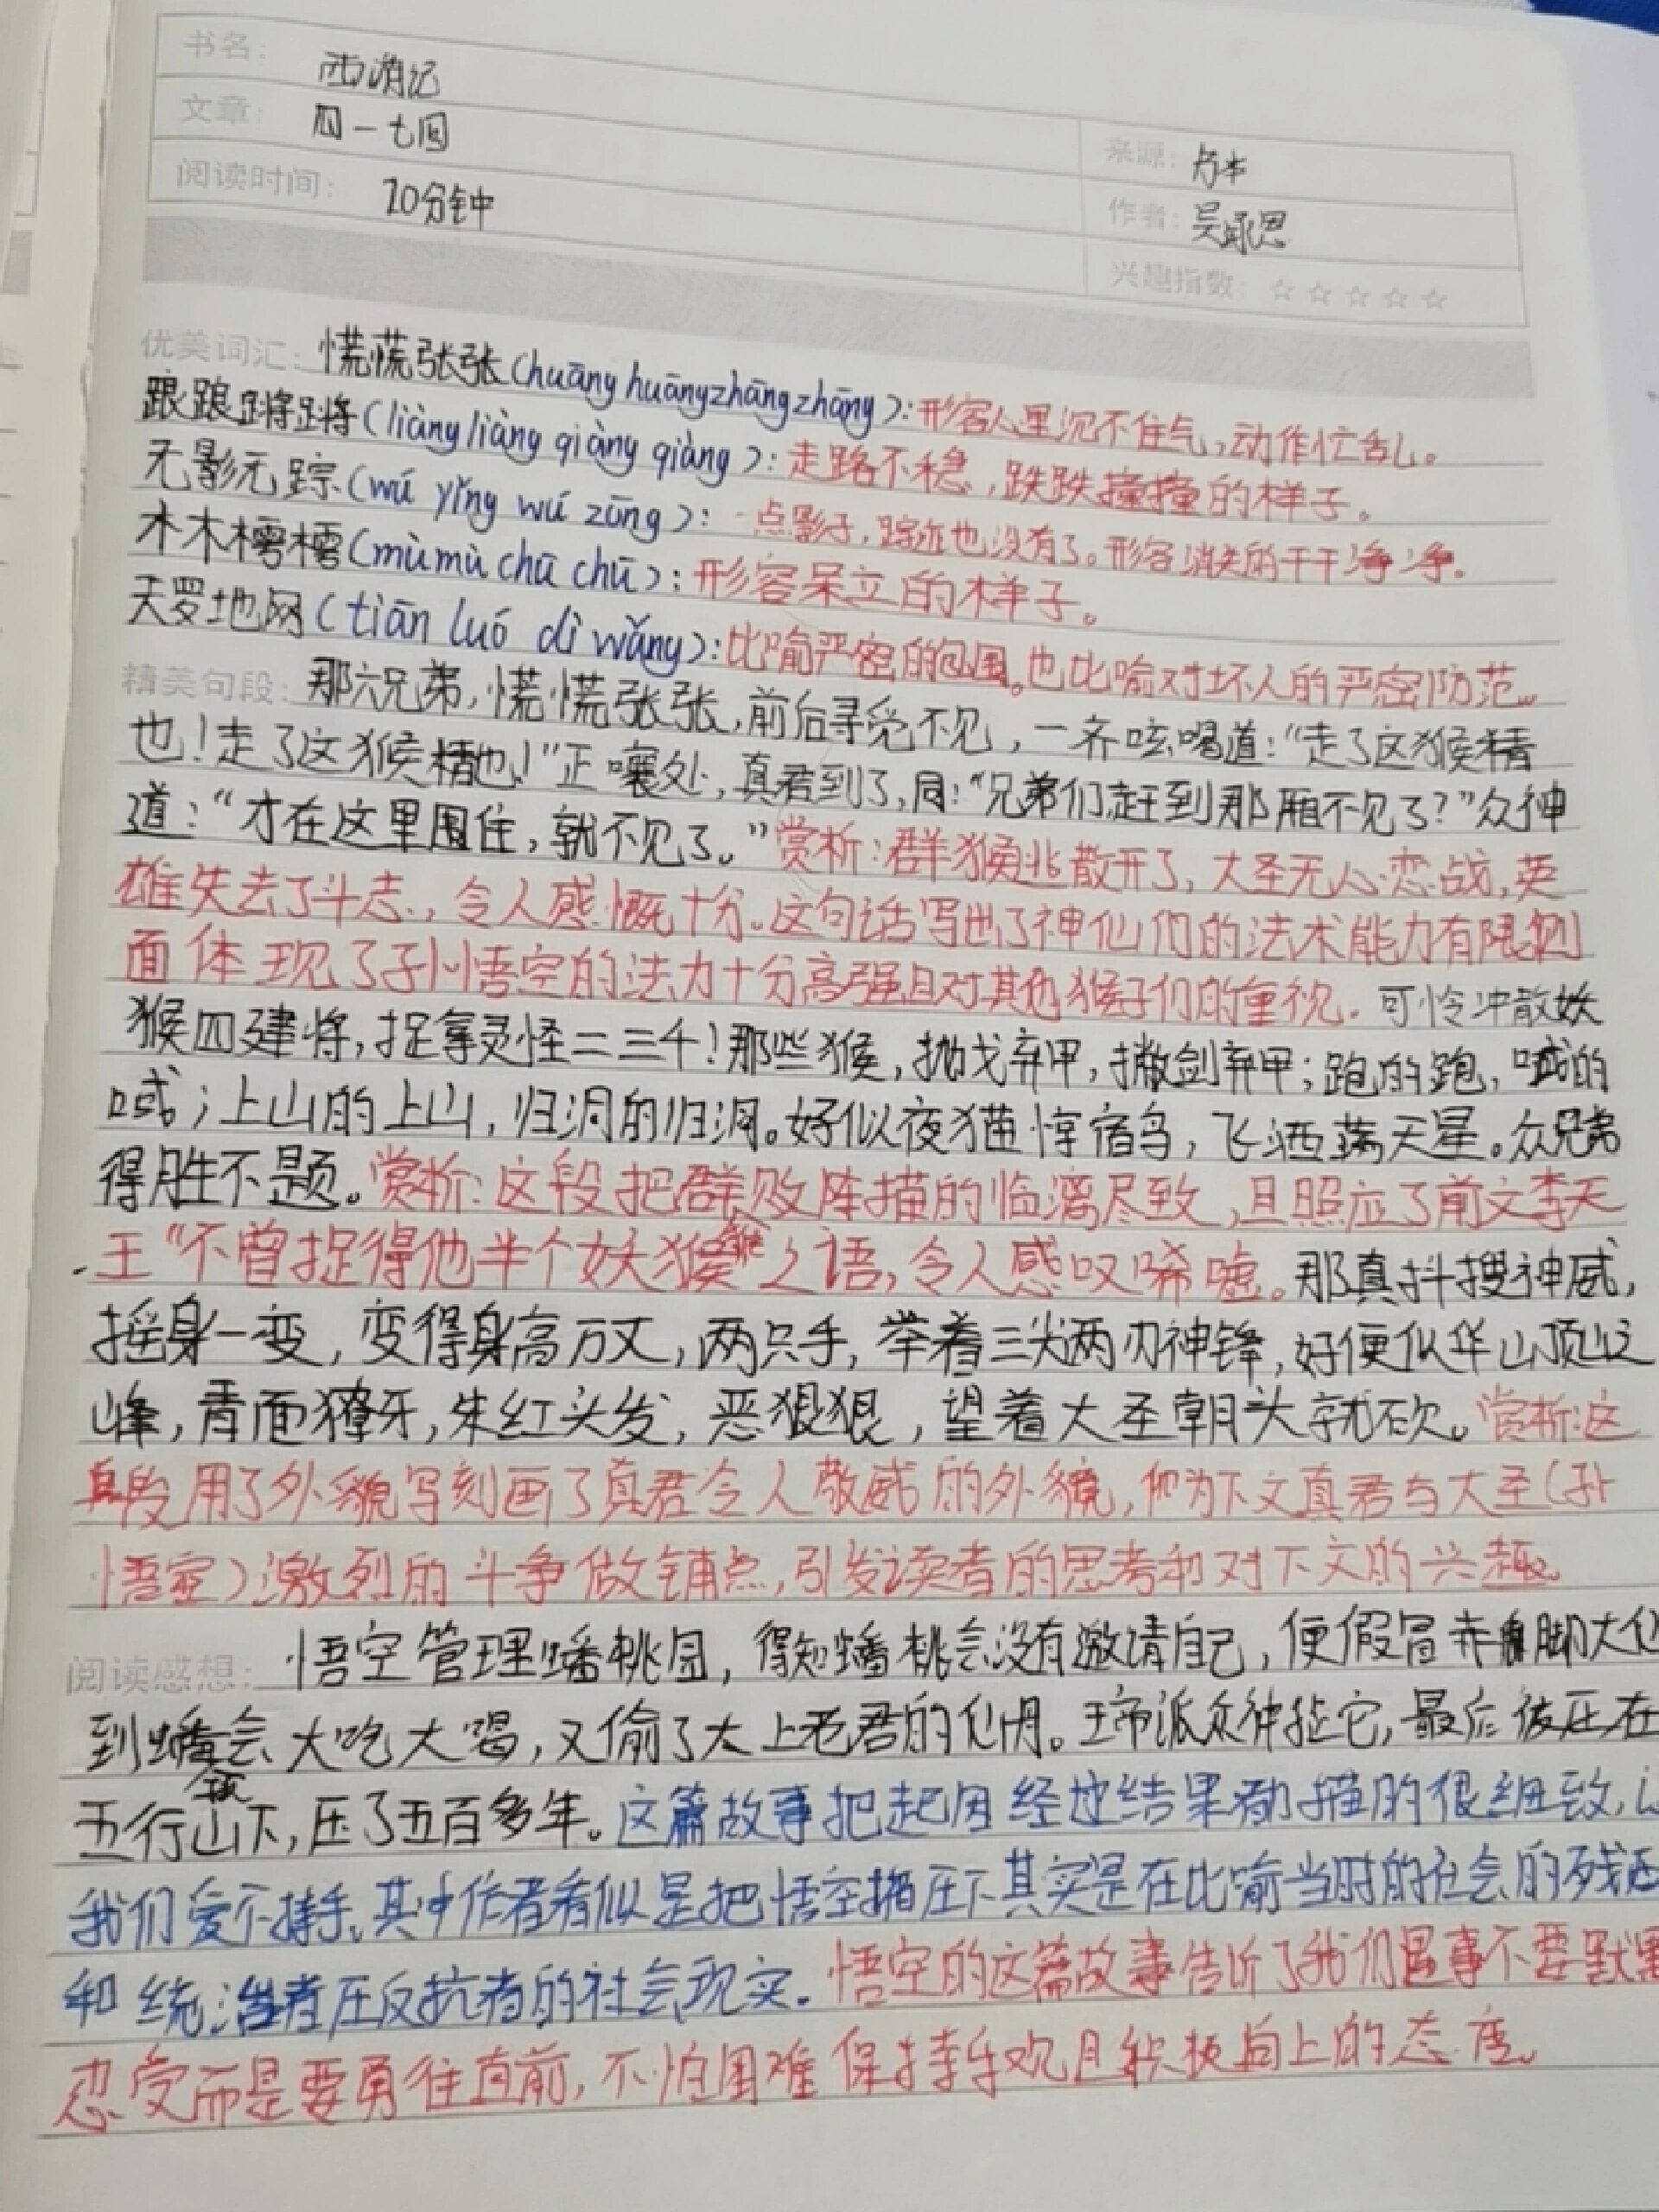 书名： 西游记
文章： 四一七回
来源：
阅读时间： 20分钟
作者：吴承恩
兴趣指数：☆☆☆☆☆
优美词汇：慌慌张张(huāng huāngzhāngzhāng)：形容人里沉不住气，动作忙乱。
踉踉蹡蹡(liàng liàng qiàng qiàng)：走路不稳，跌跌撞撞的样子。
无影无踪(wú yǐng wú zōng)：一点影子，踪迹也没有了。形容消失的干干净净。
木木樗樗(mù mù chū chū)：形容呆立的样子。
天罗地网(tiān luó dì wǎng)：比喻严密的包围。也比喻对坏人的严密防范。
精美句段：那六兄弟，慌慌张张，前后寻觅不见，一齐吆喝道：“走了这猴精
也！走了这猴精也！”正嚷处，真君到了，问：“兄弟们，赶到那厢不见了？”众神
道：“才在这里围住，就不见了。”赏析：群猴逃散开了，大圣无心恋战，英
雄失去了斗志，令人感慨十分。这句话写出了神仙们的法术能力有限侧
面体现了孙悟空的法力十分高强且对其他猴子们的重视。可怜冲散妖
猴四建将，捉拿灵怪二三千！那些猴，抛戈弃甲，撇剑弃甲；跑的跑，喊的
喊；上山的上山，归洞的归洞。好似夜猫惊宿鸟，飞洒满天星。众兄弟
得胜不题。赏析：这段把群猴败阵描的临漓尽致，且照应了前文李天
王“不曾捉得他半个妖猴”之语，令人感叹唏嘘。那真抖搜神威，
摇身一变，变得身高万丈，两只手，举着三尖两刃神锋，好便似华山顶上之
峰，青面獠牙，朱红头发，恶狠狠，望着大圣朝头就砍。赏析：这
段用了外貌写刻画了真君令人敬威的外貌，也为下文真君与大圣(孙
悟空)激烈的斗争做铺点，引发读者的思考和对下文的兴趣。
阅读感想： 悟空管理蟠桃园，得知蟠桃会没有邀请自己，便假冒赤脚大仙
到蟠桃会大吃大喝，又偷了太上老君的仙丹。玉帝派众神捉它，最后被压在
五行山下，压了五百多年。这篇故事把起因经过结果都描的很细致，让
我们爱不择手，其中作者看似是把悟空描压下其实是在比喻当时的社会的残
和统治者压反抗者的社会现实。悟空的这篇故事告诉了我们遇事不要默
忍受而是要勇往直前，不怕困难保持乐观且积极向上的态度。